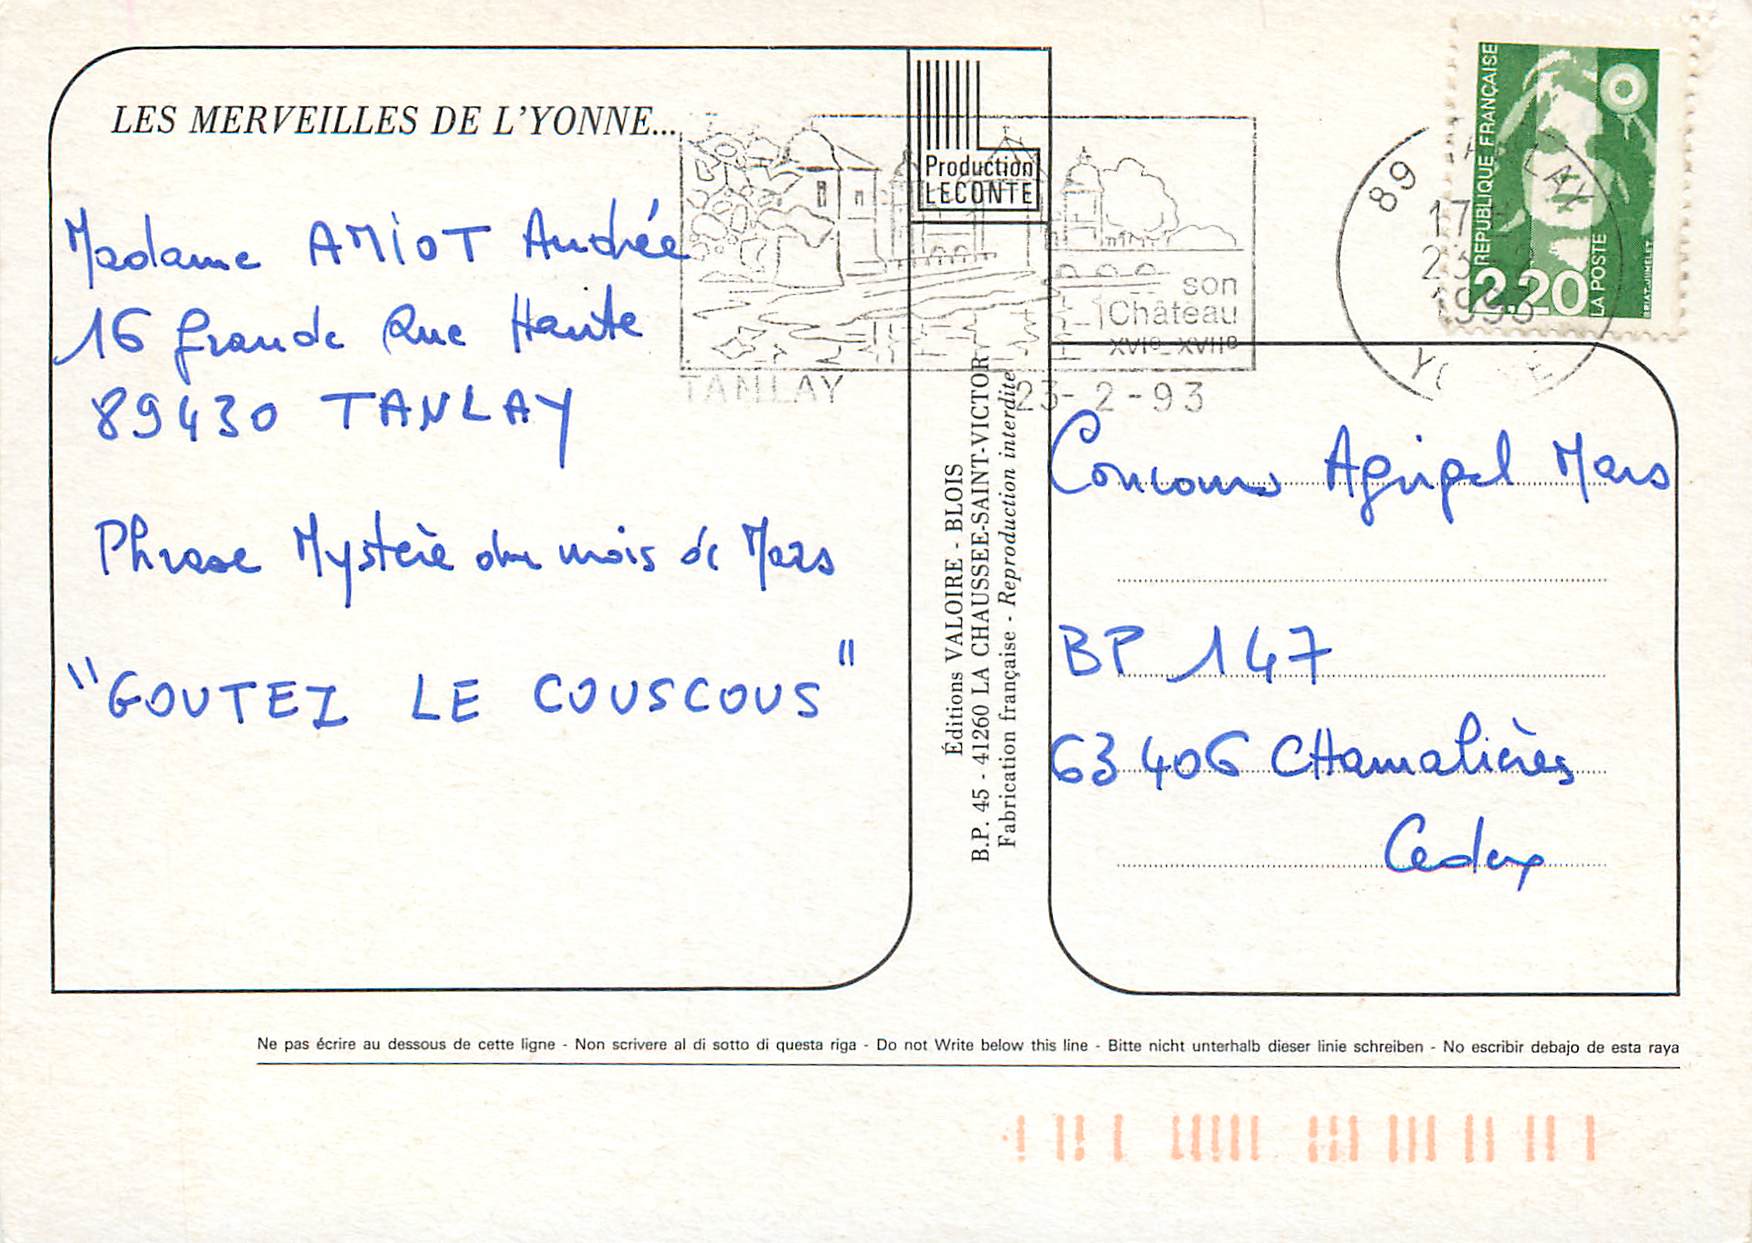 LES MERVEILLES DE L'YONNE...
Madame AMIOT Andrée
16 Grande Rue Haute
89430 TANLAY
Phrase Mystère du mois de Mars
"GOUTEZ LE COUSCOUS"
Production
LECONTE
son
Château
XVIe XVIIe
TANLAY
23-2-93
89
1993
REPUBLIQUE FRANÇAISE
2,20
LA POSTE
Éditions VALOIRE - BLOIS
B.P. 45 - 41260 LA CHAUSSEE-SAINT-VICTOR
Fabrication française - Reproduction interdite
Concours Agrigel Mars
BP 147
63406 CHamalières
Cedex
Ne pas écrire au dessous de cette ligne - Non scrivere al di sotto di questa riga - Do not Write below this line - Bitte nicht unterhalb dieser linie schreiben - No escribir debajo de esta raya